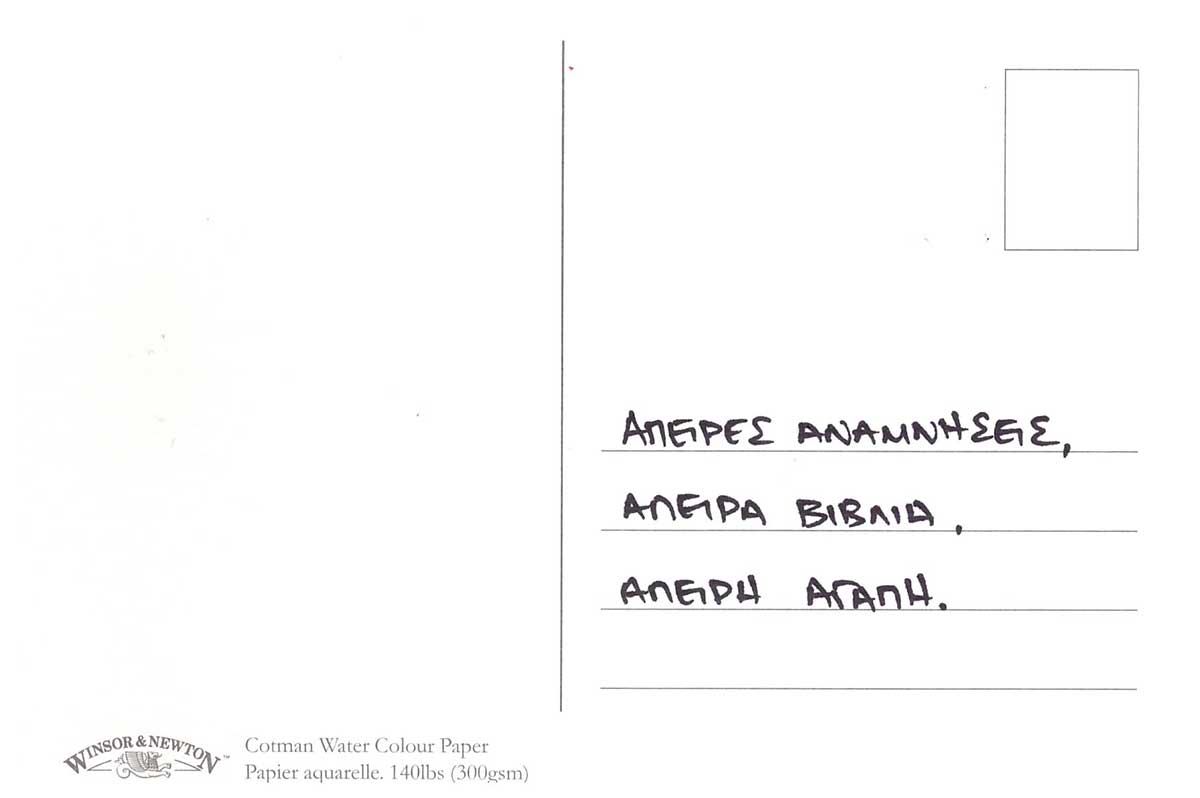 ΑΠΕΙΡΕΣ ΑΝΑΜΝΗΣΕΙΣ,
ΑΠΕΙΡΑ ΒΙΒΛΙΑ,
ΑΠΕΙΡΗ ΑΓΑΠΗ.
WINSOR & NEWTON™
Cotman Water Colour Paper
Papier aquarelle. 140lbs (300gsm)